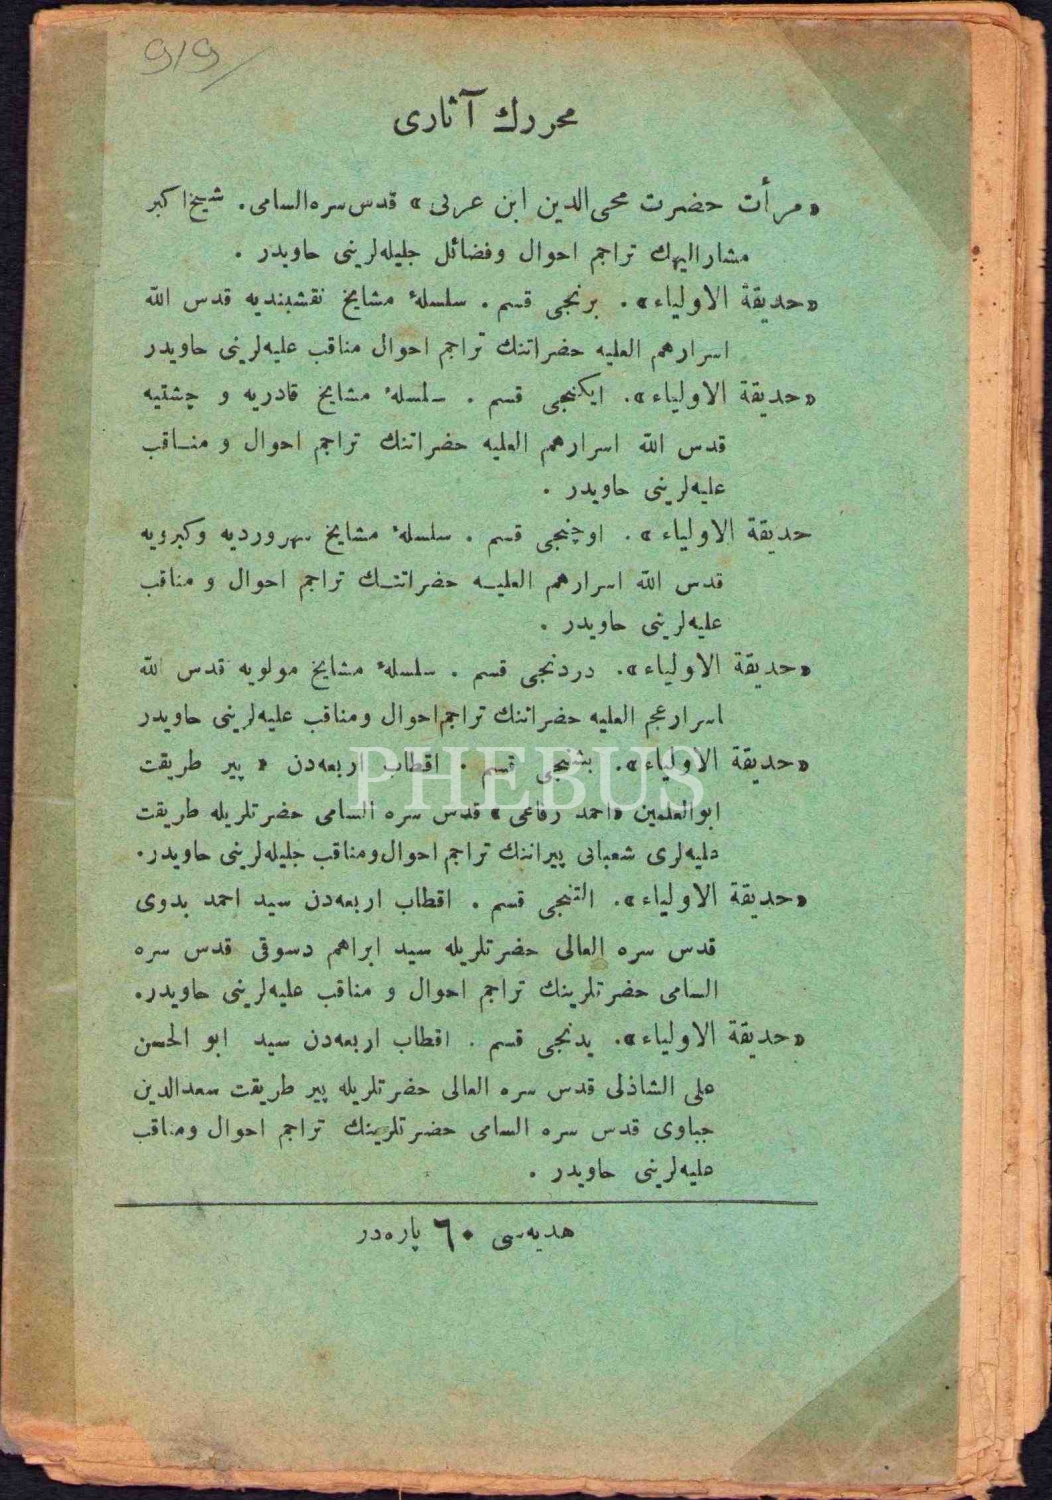 919/
محررك آثاری
«مرأت حضرت محی‌الدین ابن عربی» قدس‌سره‌السامی. شیخ‌اكبر
مشارالیهك تراجم احوال وفضائل جلیله‌لرینی حاویدر .
«حدیقة الاولیاء». برنجی قسم . سلسلهٔ مشایخ نقشبندیه قدس الله
اسرارهم العلیه حضراتنك تراجم احوال مناقب علیه‌لرینی حاویدر
«حدیقة الاولیاء». ایكنجی قسم . سلسلهٔ مشایخ قادریه و چشتیه
قدس الله اسرارهم العلیه حضراتنك تراجم احوال و منـاقب
علیه‌لرینی حاویدر .
حدیقة الاولیاء» . اوچنجی قسم . سلسلهٔ مشایخ سهروردیه وكبرویه
قدس الله اسرارهم العلیـه حضراتنـك تراجم احوال و مناقب
علیه‌لرینی حاویدر .
«حدیقة الاولیاء». دردنجی قسم . سلسلهٔ مشایخ مولویه قدس الله
اسرارعجم العلیه حضراتنك تراجم‌احوال ومناقب علیه‌لرینی حاویدر
«حدیقة الاولیاء». بشنجی قسم . اقطاب اربعه‌دن « پیر طریقت
PHEBUS
ابوالعلمین «احمد رفاعی» قدس سره السامی حضرتلریله طریقت
علیه‌لری شعبانی پیراننك تراجم احوال‌ومناقب جلیله‌لرینی حاویدر.
«حدیقة الاولیاء». التنجی قسم . اقطاب اربعه‌دن سید احمد بدوی
قدس سره العالی حضرتلریله سید ابراهم دسوقی قدس سره
السامی حضرتلرینك تراجم احوال و مناقب علیه‌لرینی حاویدر.
«حدیقة الاولیاء». یدنجی قسم . اقطاب اربعه‌دن سید ابو الحسن
علی الشاذلی قدس سره العالی حضرتلریله پیر طریقت سعدالدین
جباوی قدس سره السامی حضرتلرینك تراجم احوال ومناقب
علیه‌لرینی حاویدر .
هدیه‌سی ٦٠ پاره‌در